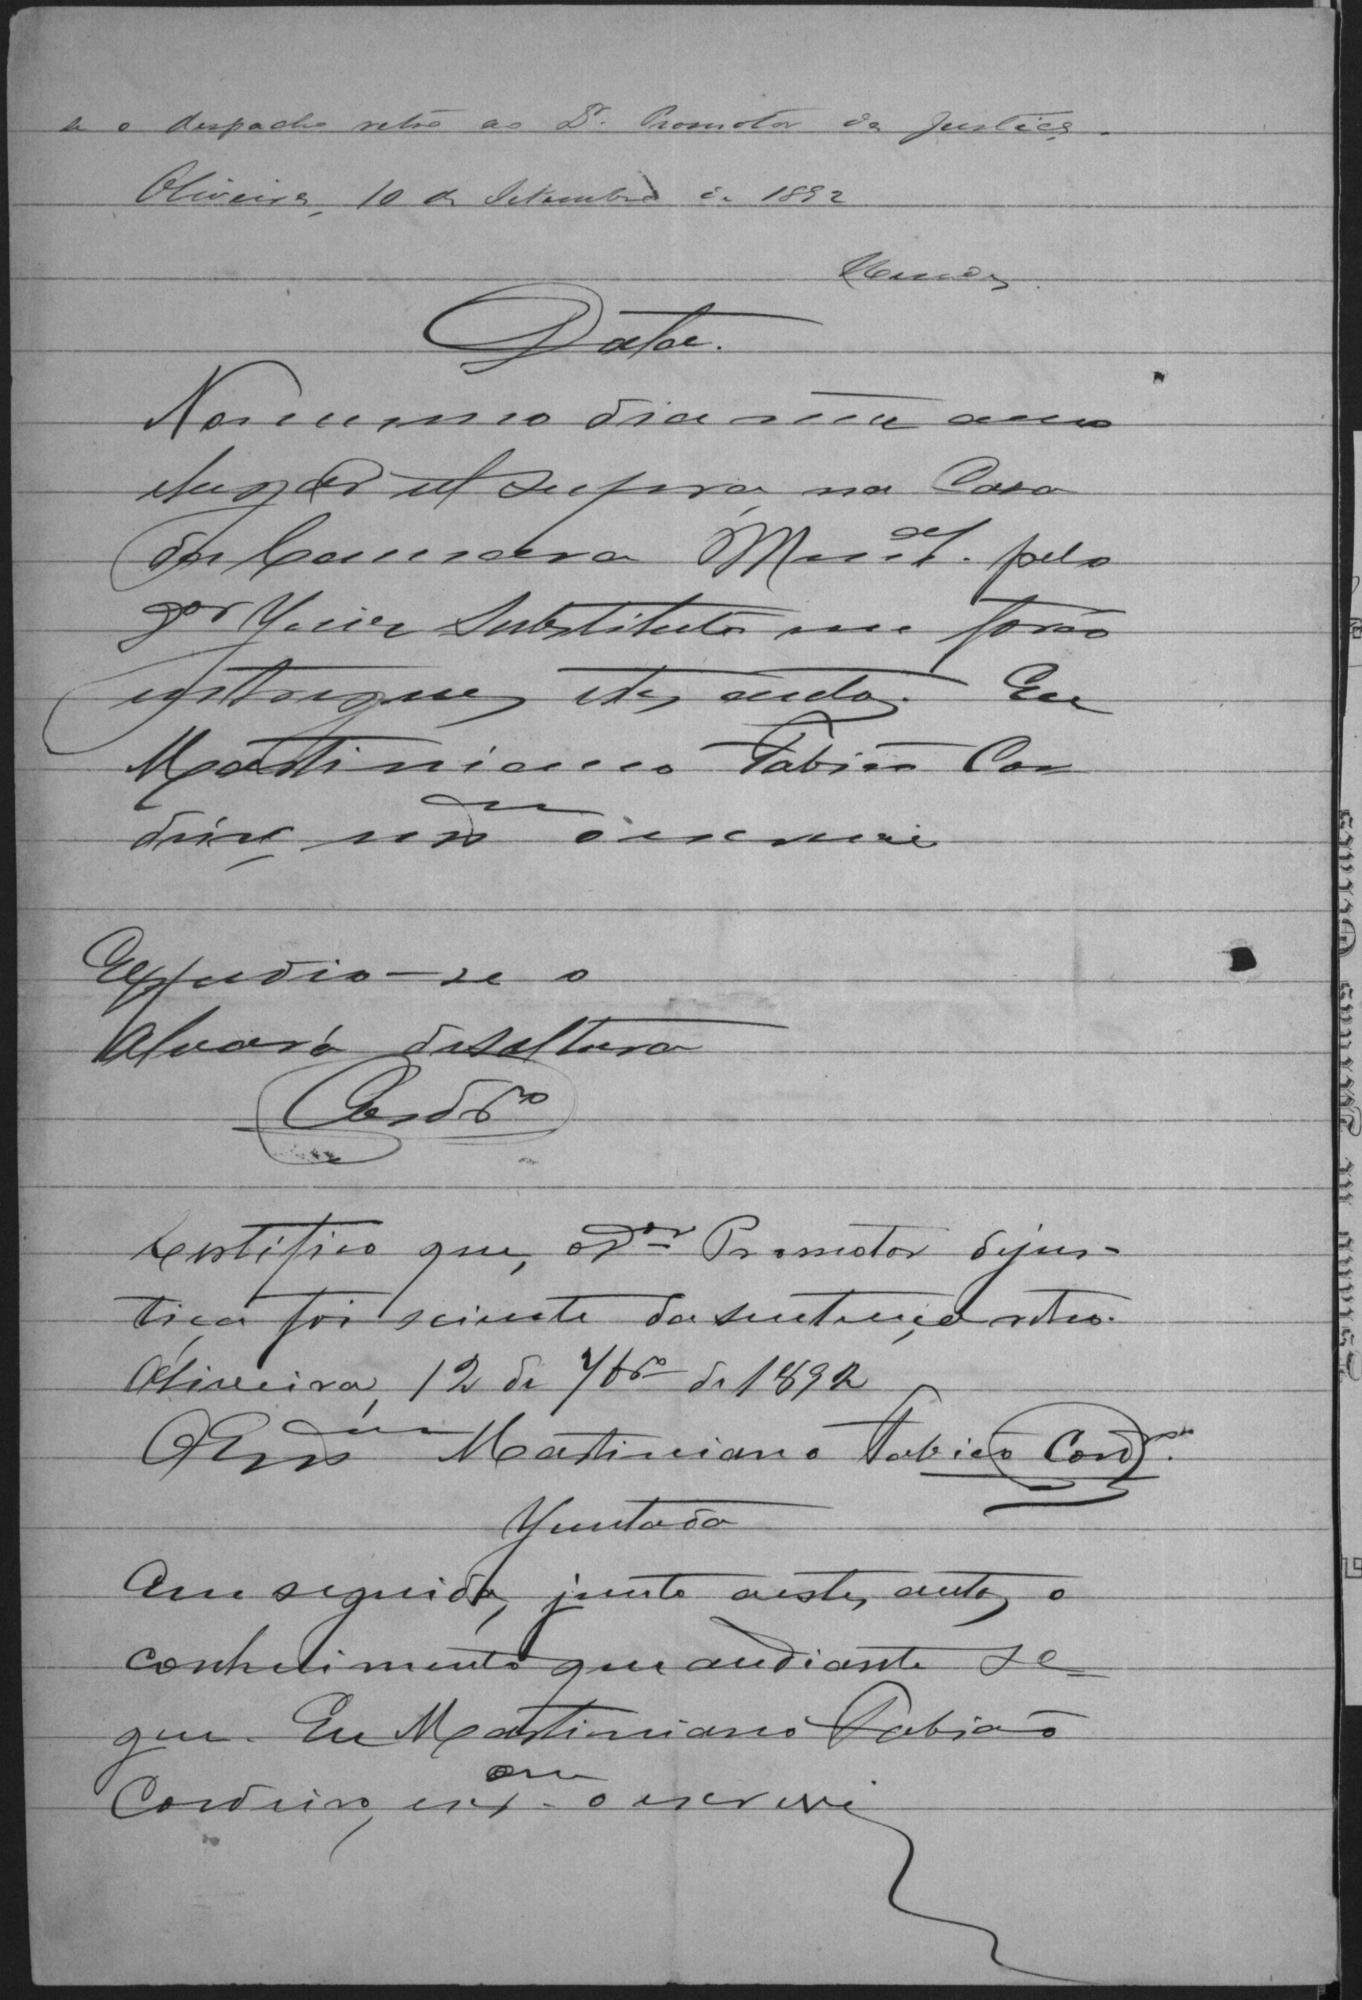 se o despacho retro ao Dr. Promotor da Justiça.
Oliveira, 10 de Setembro de 1892
Data.
No mesmo dia mez anno
e lugar ut supra, na Casa
da Camara Munal. pelo
Juiz Substituto me forão
entregues estes autos. Eu
Martiniano Fabião Cor
deiro, o escrevi
Expedio-se o
Alvará de soltura
Cordro
Certifico que, o Dor Promotor de jus-
tiça foi sciente da sentença retro.
Oliveira, 12 de 7bro de 1892
O Escrivam Martiniano Fabião Cordro.
Juntada
Em seguida, junto a estes autos o
conhecimento que a udiante se
gue. Eu Martiniano Fabião
Cordeiro, escram o escrevi